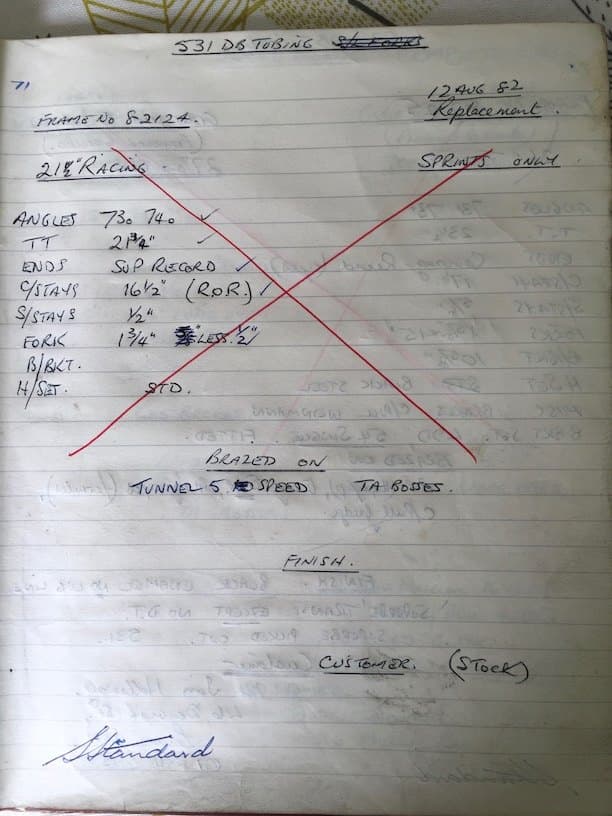 531 DB TUBING
71
12 AUG 82
FRAME No 82124.
Replacement.
21½" RACING.
SPRINTS ONLY
ANGLES 73o 74o ✓
TT 21¾" ✓
ENDS SUP RECORD ✓
C/STAYS 16½" (R.O.R.) ✓
S/STAYS ½"
FORK 1¾" LESS ½" ✓
B/BKT.
H/SET. STD.
BRAZED ON
TUNNEL 5 SPEED TA BOSSES.
FINISH.
CUSTOMER. (STOCK)
SStandard